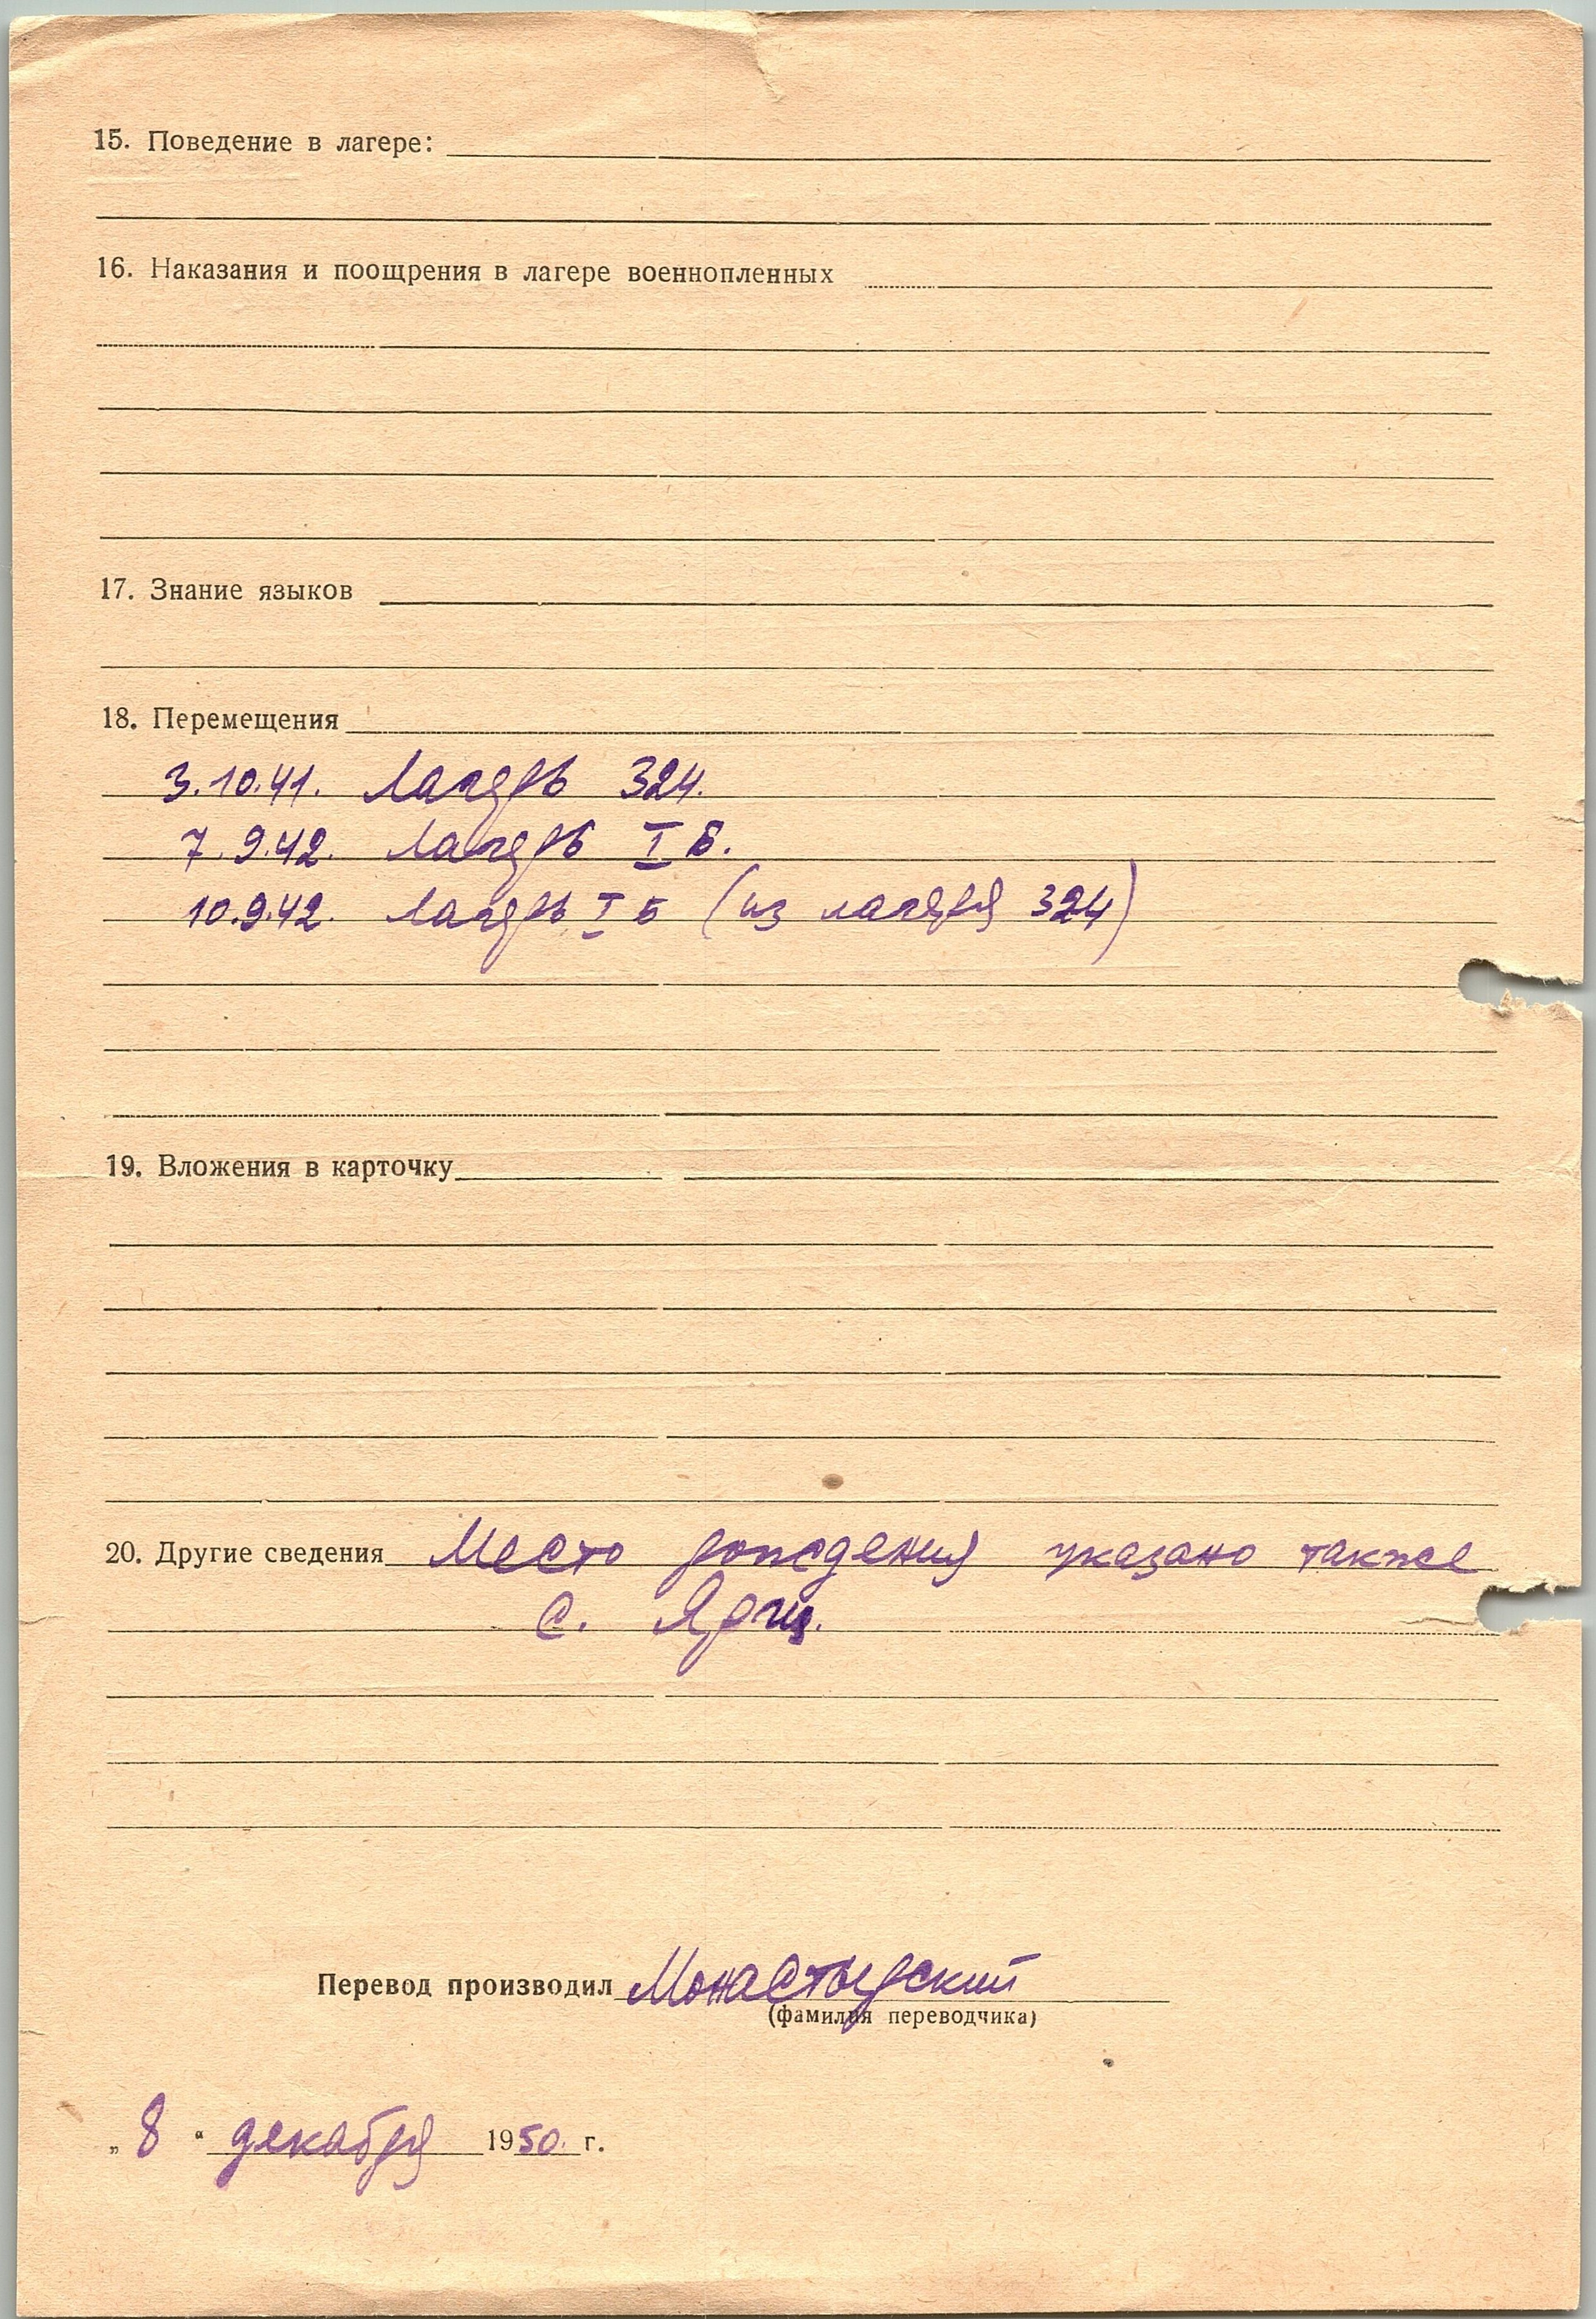 15. Поведение в лагере:
16. Наказания и поощрения в лагере военнопленных
17. Знание языков
18. Перемещения
3.10.41. Лагерь 324.
7.9.42. Лагерь I Б.
10.9.42. Лагерь I Б (из лагеря 324)
19. Вложения в карточку
20. Другие сведения Место рождения указано также
с.
Перевод производил Монастырский
(фамилия переводчика)
„ 8 “ декабря 1950. г.